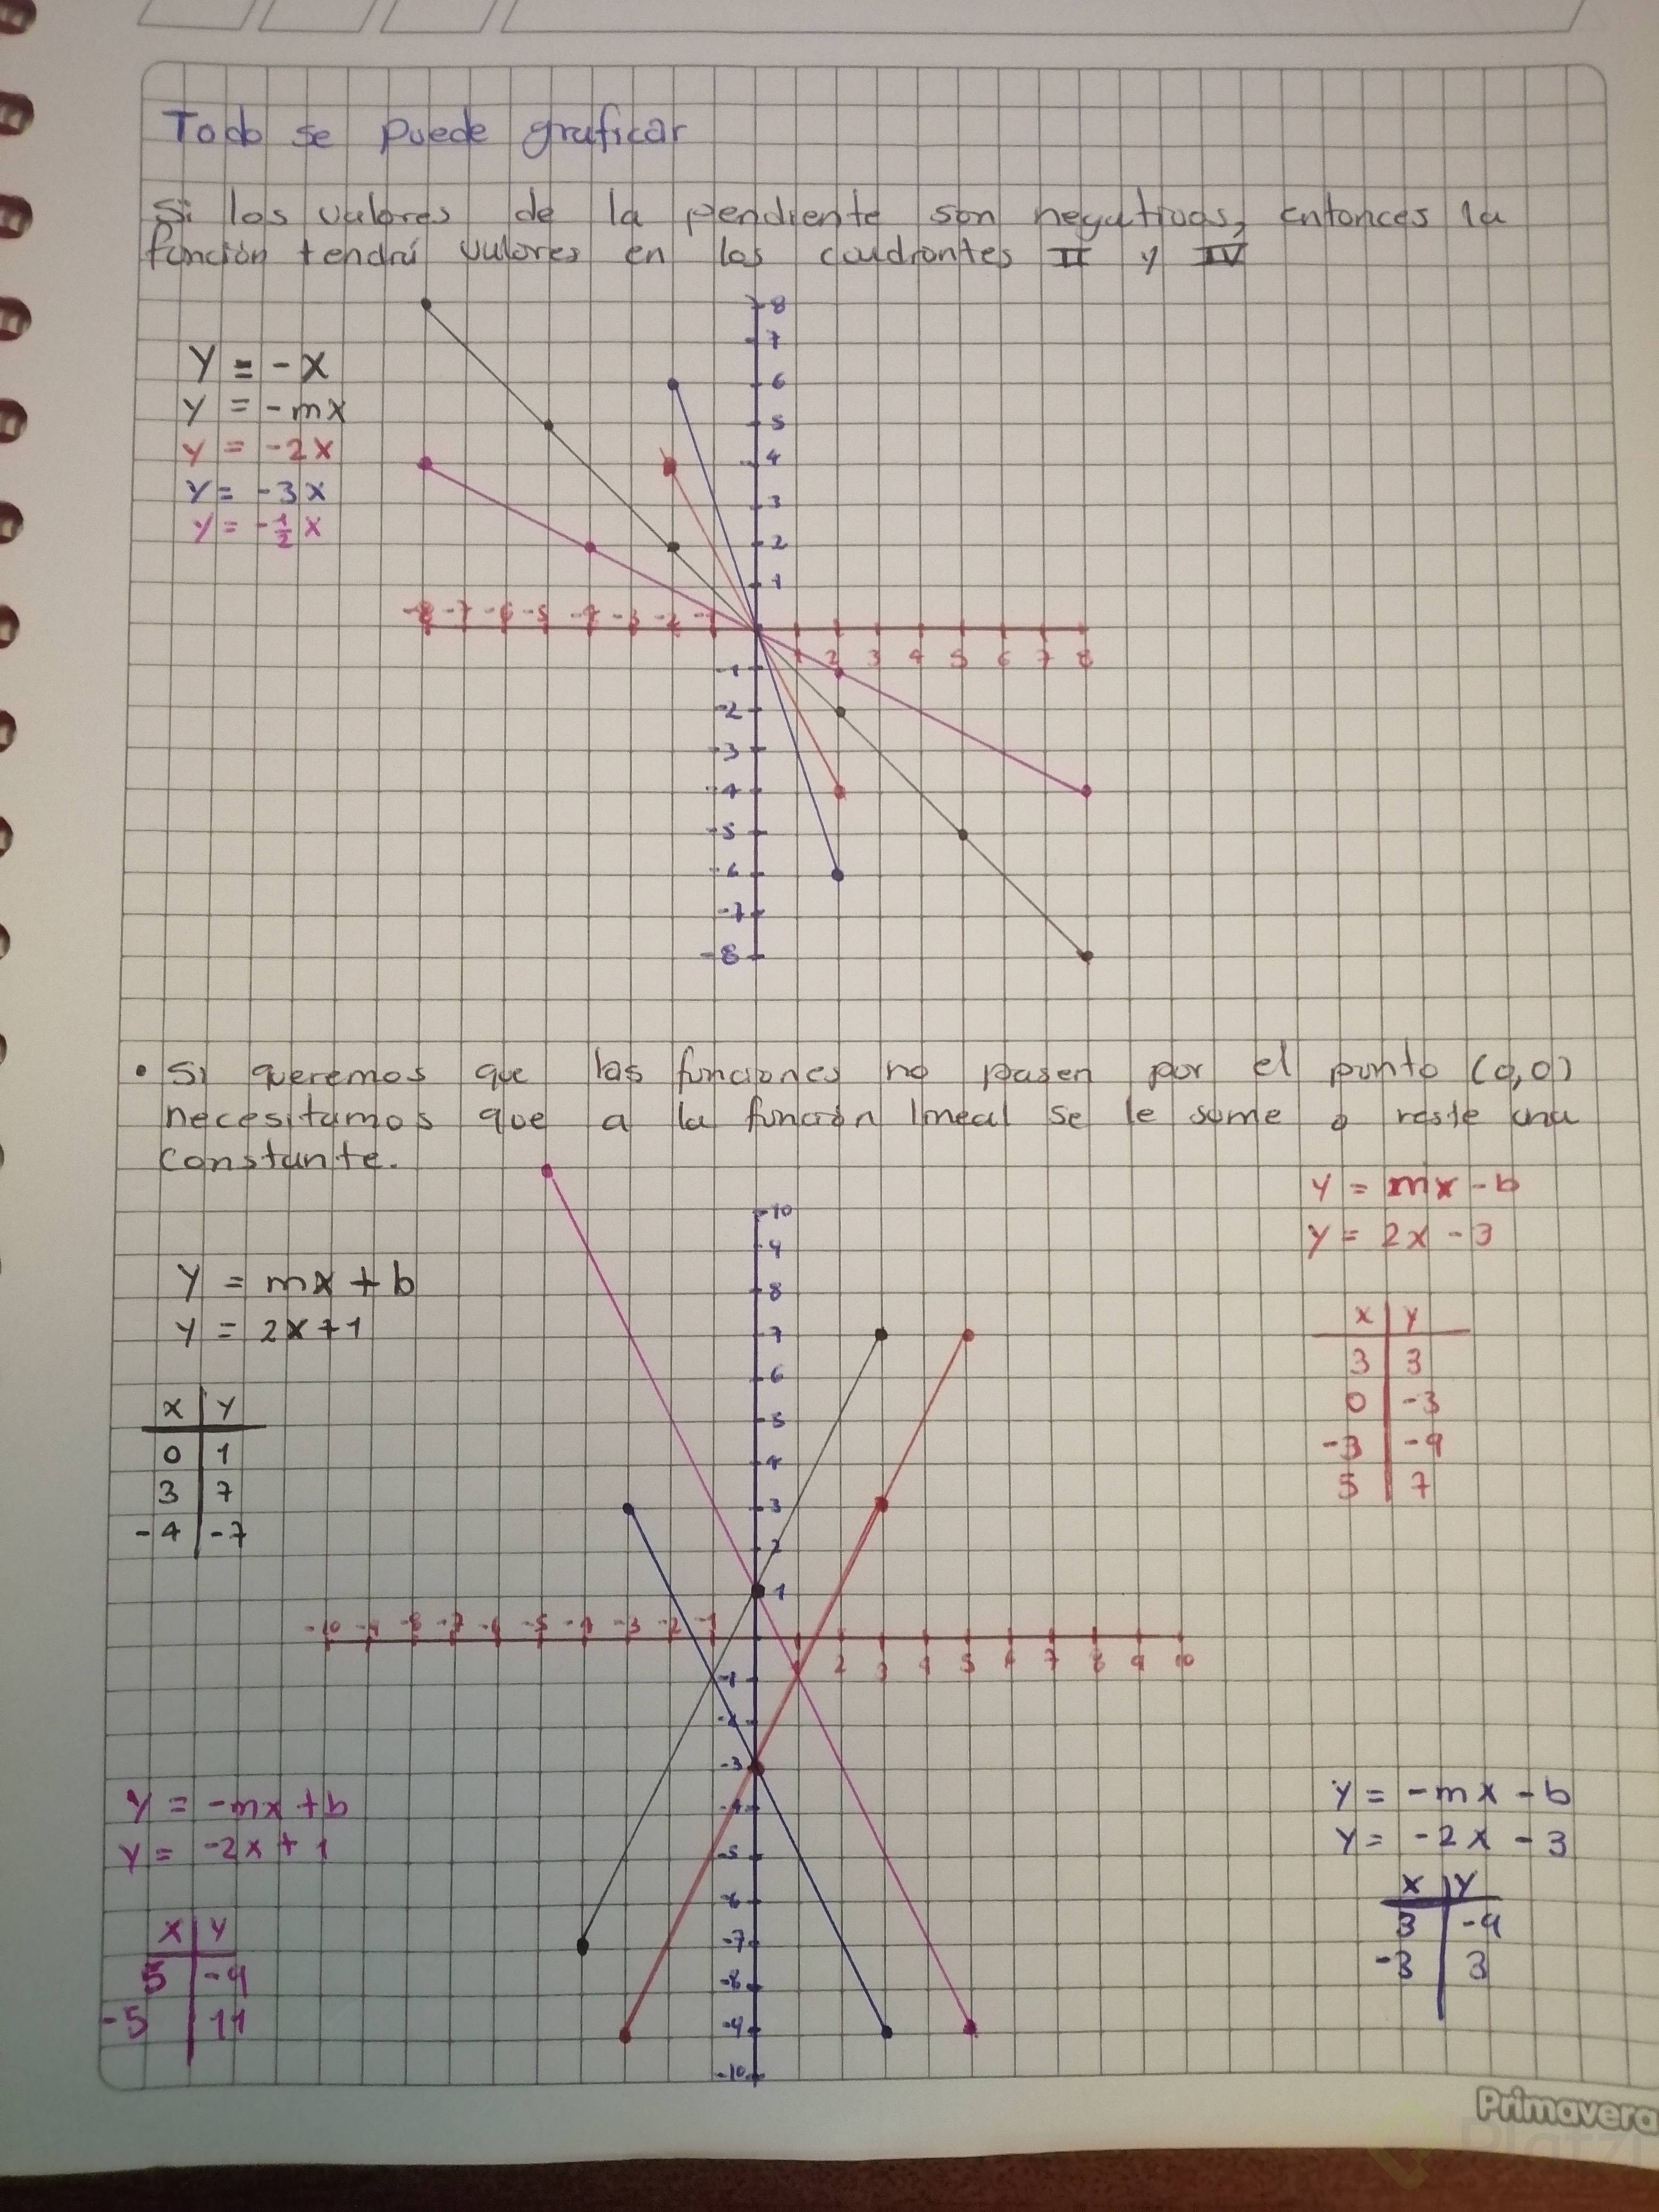 Todo se puede graficar
Si los valores de la pendiente son negativos, entonces la
función tendrá valores en los cuadrantes II y IV
y = -x
y = -mx
y = -2x
y = -3x
y = -1/2 x
8
7
6
5
4
3
2
1
-8 -7 -6 -5 -4 -3 -2 -1
1 2 3 4 5 6 7 8
-1
-2
-3
-4
-5
-6
-7
-8
• Si queremos que las funciones no pasen por el punto (0,0)
necesitamos que a la función lineal se le sume o reste una
constante.
y = mx - b
y = 2x - 3
x | y
3 | 3
0 | -3
-3 | -9
5 | 7
y = mx + b
y = 2x + 1
x | y
0 | 1
3 | 7
-4 | -7
10
9
8
7
6
5
4
3
2
1
-10 -9 -8 -7 -6 -5 -4 -3 -2 -1
2 3 4 5 6 7 8 9 10
-1
-2
-3
-4
-5
-6
-7
-8
-9
-10
y = -mx + b
y = -2x + 1
x | y
5 | -9
-5 | 11
y = -mx - b
y = -2x - 3
x | y
3 | -9
-3 | 3
Primavera
Platzi